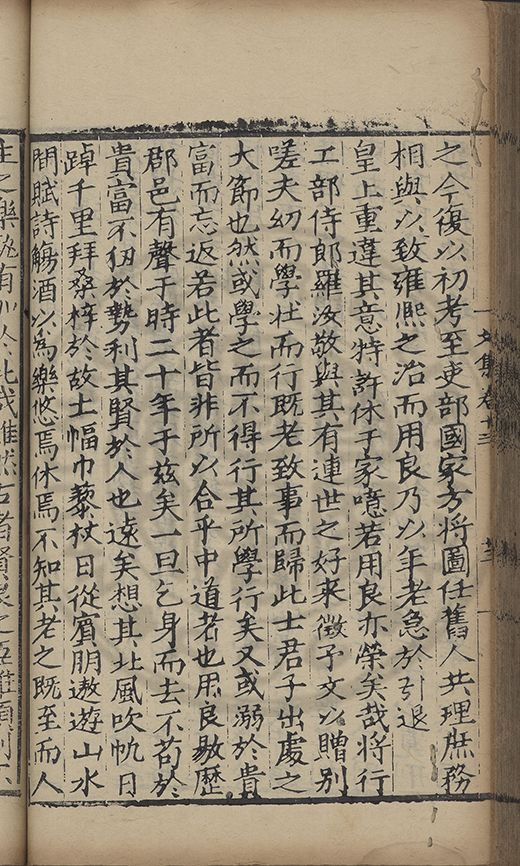 之今復以初考至吏部國家方將圖任舊人共理庶務
相與以致雍熙之治而用良乃以年老急於引退
皇上重違其意特許休于家噫若用良亦榮矣哉將行
工部侍郎羅汝敬與其有連世之好來徵予文以贈別
嗟夫幼而學壯而行既老致事而歸此士君子出處之
大節也然或學之而不得行其所學行矣又或溺於貴
富而忘返若此者皆非所以合乎中道者也用良敭歷
郡邑有聲于時二十年于茲矣一旦乞身而去不苟於
貴富不㧓於勢利其賢於人也遠矣想其北風吹帆日
踔千里拜桑梓於故土幅巾藜杖日從賓朋遨遊山水
間賦詩觴酒以為樂悠焉休焉不知其老之既至而人
文集卷十三